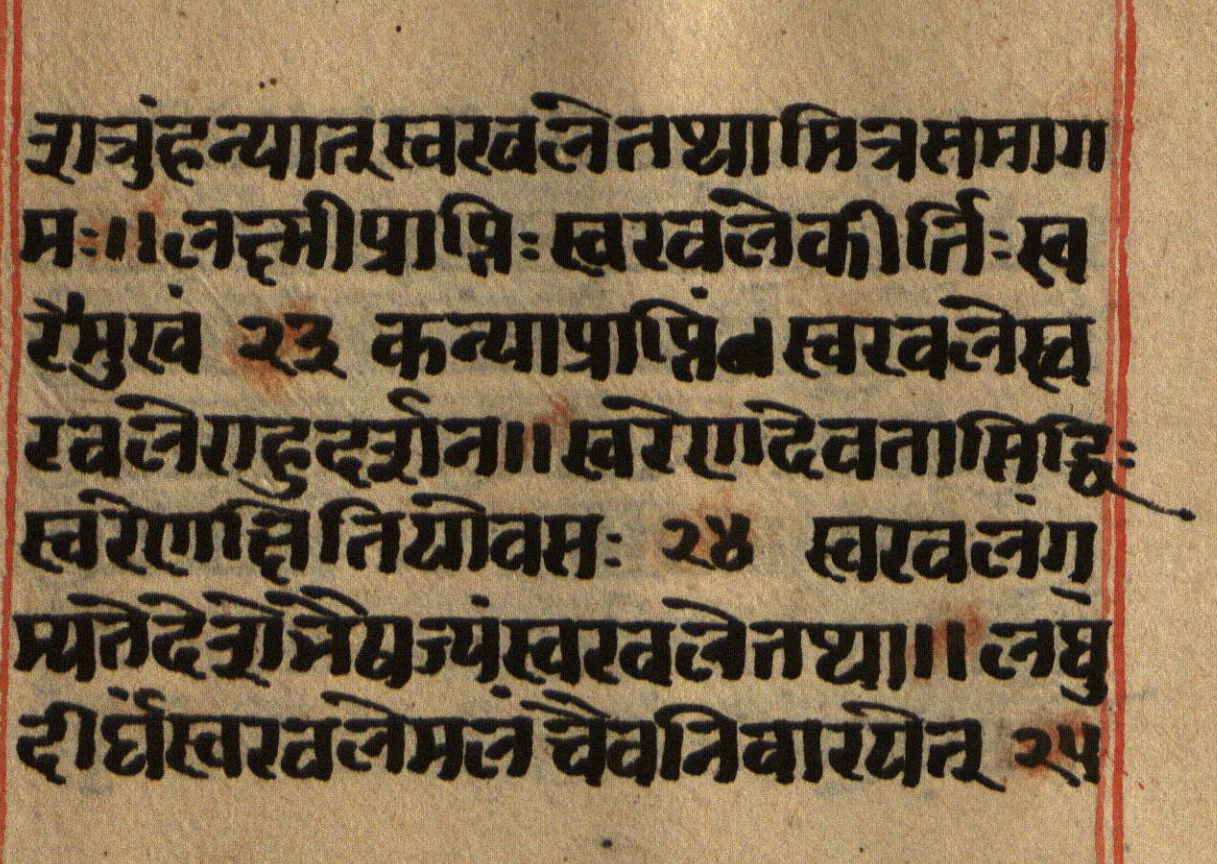 शत्रुंहन्यात्स्वरवलेतथामित्रसमाग
मः॥लक्ष्मीप्राप्तिःस्वरवलेकीर्तिःस्व
रैमुखं २३ कन्याप्राप्तिं स्वरवलेस्व
रवलेराहुदर्शन॥स्वरेणदेवतासिद्धिः
स्वरेणक्षितियोवसः २४ स्वरवलंग
म्यतेदेशेभैषज्यंस्वरवलेतथा॥लघु
दीर्घंस्वरवलेमलंचैवनिवारयेत् २५